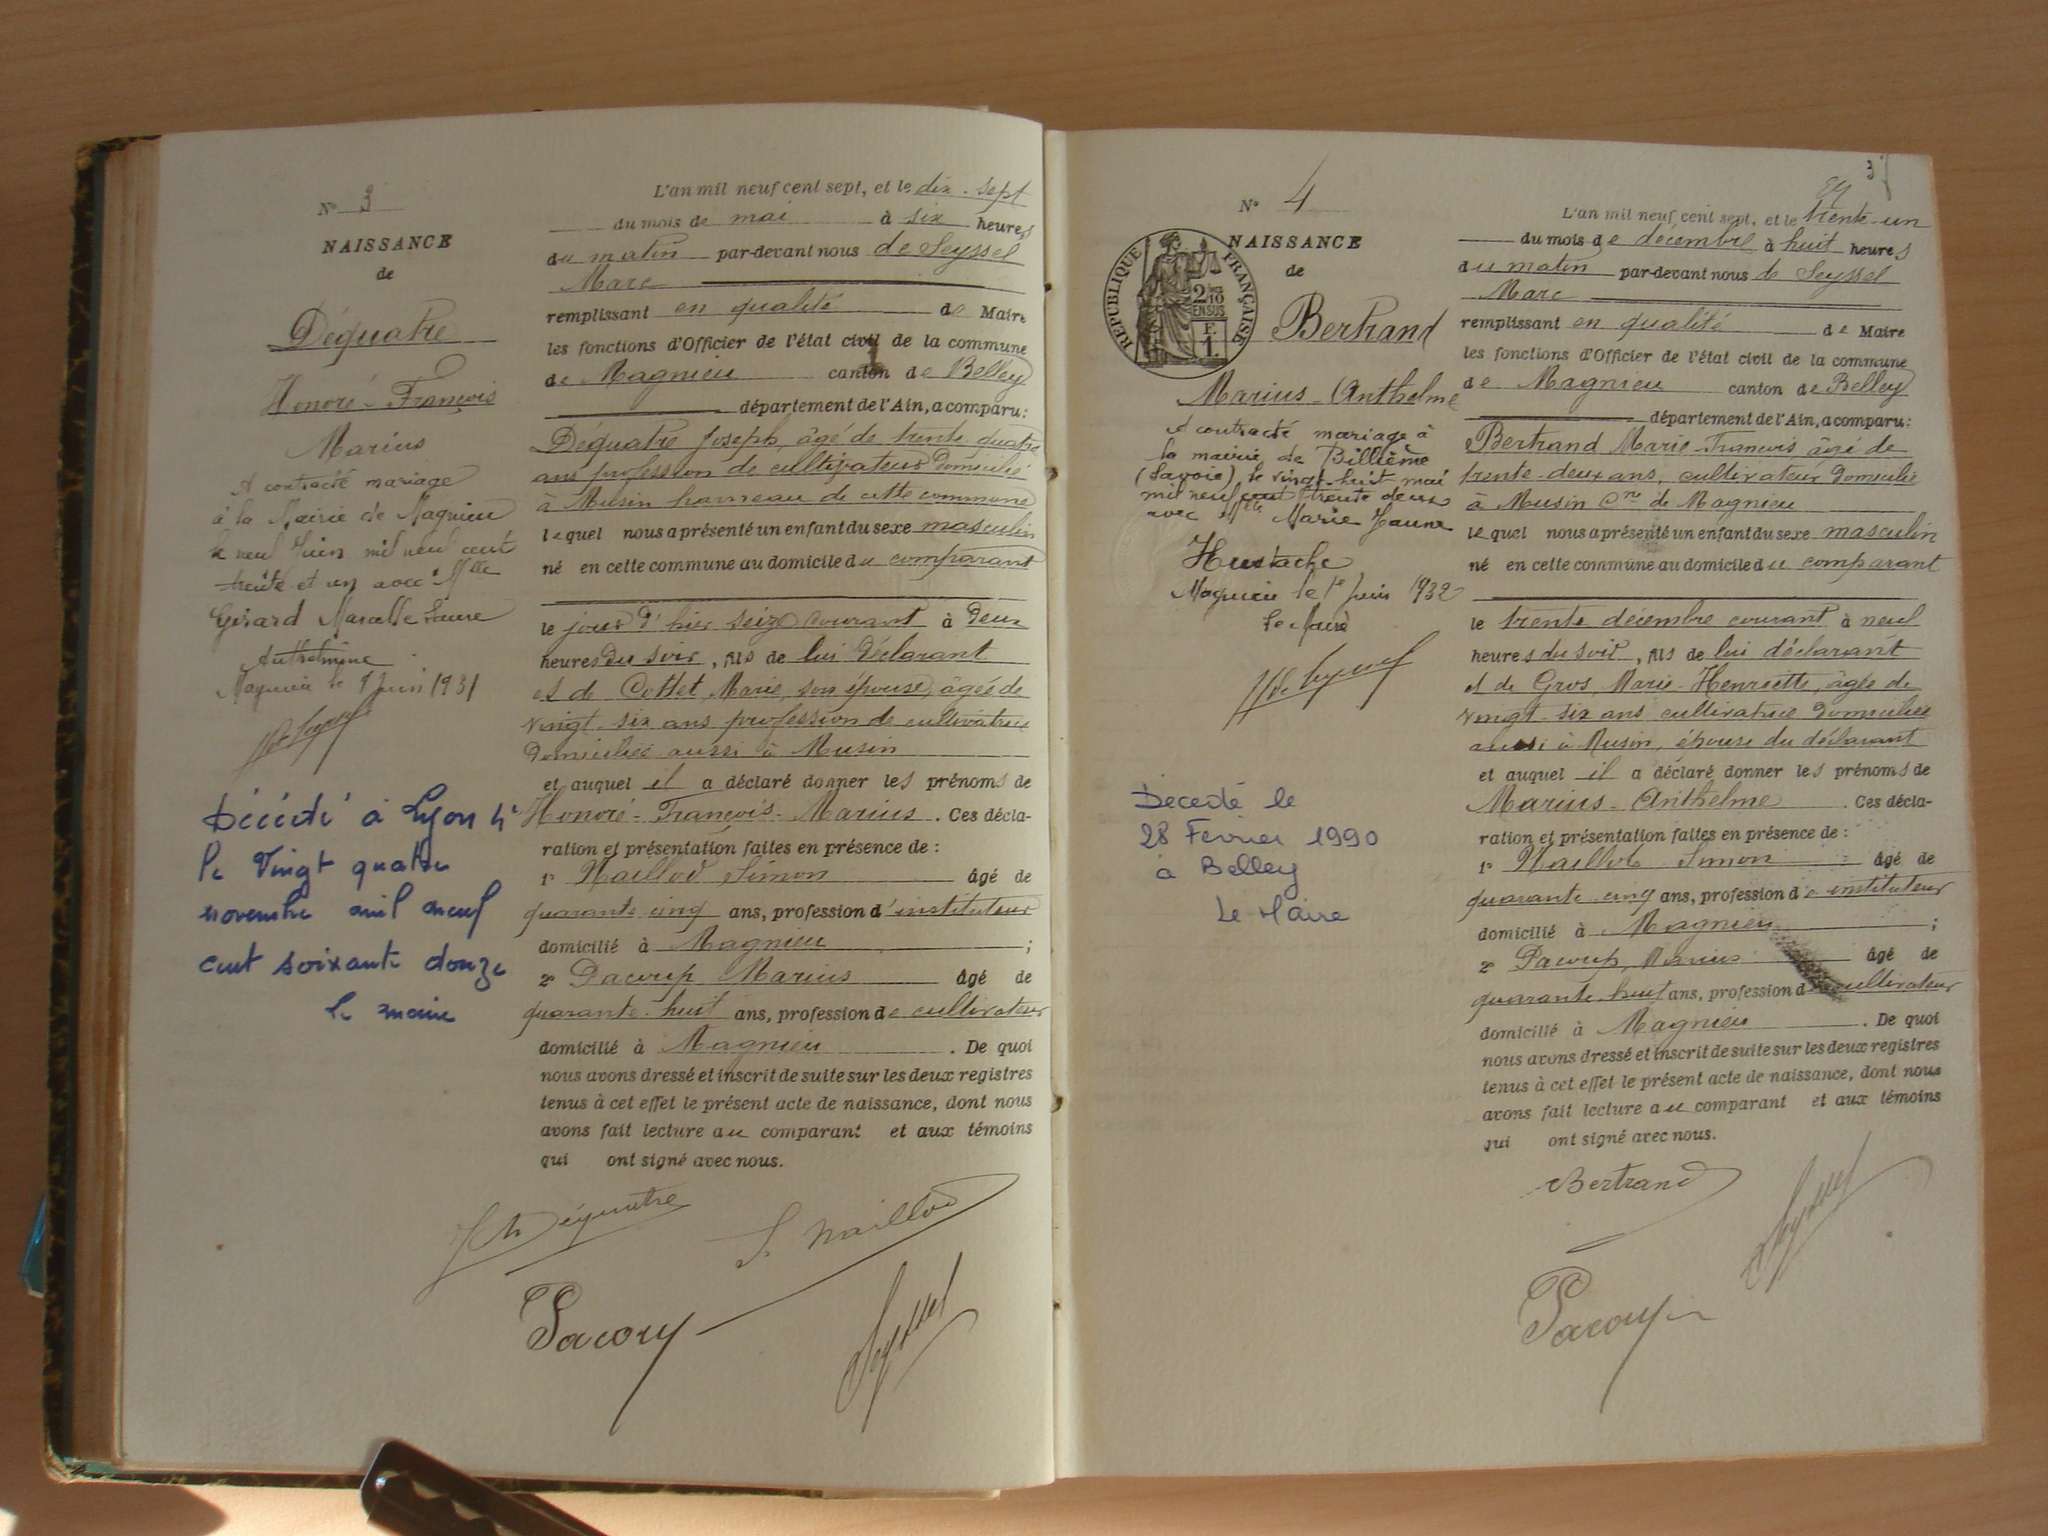 N° 3
NAISSANCE
de
Déquatre
Honoré-François
Marius
A contracté mariage
à la Mairie de Magnieu
le neuf Juin mil neuf cent
trente et un avec Mlle
Gérard Marcelle Laure
Anthelmine
Magnieu le 9 Juin 1931
Décédé à Lyon 4e
le Vingt quatre
novembre mil neuf
cent soixante douze
le maire
L'an mil neuf cent sept, et le dix-sept
du mois de mai à six heures
du matin par-devant nous de Seyssel
Marc
remplissant en qualité de Maire
les fonctions d'Officier de l'état civil de la commune
de Magnieu canton de Belley
département de l'Ain, a comparu:
Déquatre Joseph, âgé de trente quatre
ans profession de cultivateur domicilié
à Musin hameau de cette commune
lequel nous a présenté un enfant du sexe masculin
né en cette commune au domicile du comparant
le jour d'hier seize courant à deux
heures du soir, fils de lui déclarant
et de Cottet, Marie, son épouse, âgée de
vingt-six ans profession de cultivatrice
domiciliée aussi à Musin
et auquel il a déclaré donner les prénoms de
Honoré-François-Marius. Ces décla-
ration et présentation faites en présence de:
1° Naillod Simon âgé de
quarante cinq ans, profession d'instituteur
domicilié à Magnieu ;
2° Pacoup Marius âgé de
quarante-huit ans, profession de cultivateur
domicilié à Magnieu. De quoi
nous avons dressé et inscrit de suite sur les deux registres
tenus à cet effet le présent acte de naissance, dont nous
avons fait lecture au comparant et aux témoins
qui ont signé avec nous.
Déquatre
S. Naillod
Seyssel
N° 4
NAISSANCE
de
RÉPUBLIQUE FRANÇAISE
2/10
EN SUS
F.
1.
Bertrand
Marius-Anthelme
A contracté mariage à
la mairie de Billième
(Savoie), le vingt-huit mai
mil neuf cent trente deux
avec Mlle Marie
Hustache
Magnieu le 1e Juin 1932
Le Maire
Décédé le
28 Février 1990
à Belley
Le Maire
3
L'an mil neuf cent sept, et le trente-un
du mois de décembre à huit heures
du matin par-devant nous de Seyssel
Marc
remplissant en qualité de Maire
les fonctions d'Officier de l'état civil de la commune
de Magnieu canton de Belley
département de l'Ain, a comparu:
Bertrand Marie-François âgé de
trente-deux ans, cultivateur domicilié
à Musin Cne de Magnieu
lequel nous a présenté un enfant du sexe masculin
né en cette commune au domicile du comparant
le trente décembre courant à neuf
heures du soir, fils de lui déclarant
et de Gros, Marie-Henriette, âgée de
vingt-six ans cultivatrice domiciliée
aussi à Musin, épouse du déclarant
et auquel il a déclaré donner les prénoms de
Marius-Anthelme. Ces décla-
ration et présentation faites en présence de:
1° Naillod Simon âgé de
quarante cinq ans, profession d'instituteur
domicilié à Magnieu ;
2° Pacoup Marius âgé de
quarante-huit ans, profession de cultivateur
domicilié à Magnieu. De quoi
nous avons dressé et inscrit de suite sur les deux registres
tenus à cet effet le présent acte de naissance, dont nous
avons fait lecture au comparant et aux témoins
qui ont signé avec nous.
Bertrand
Seyssel